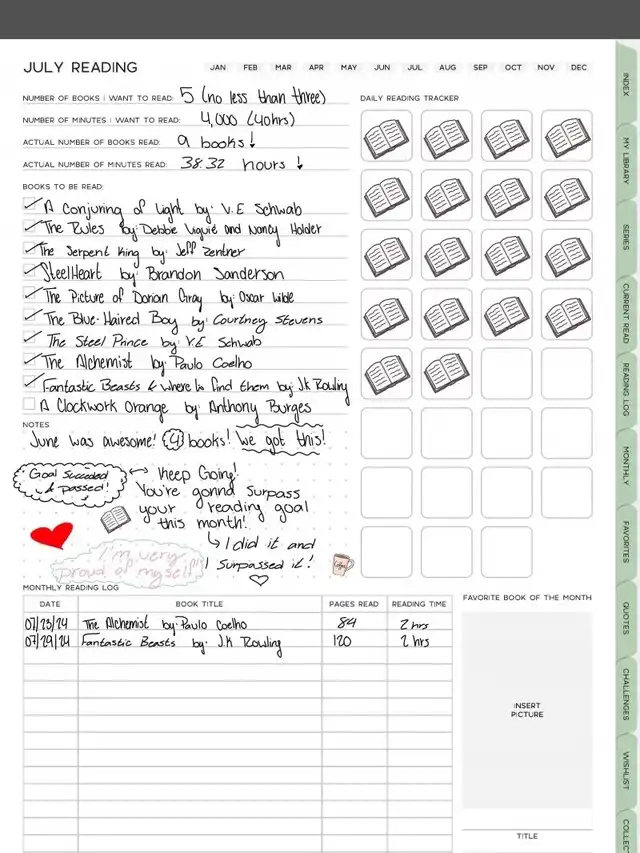 JULY READING
JAN FEB MAR APR MAY JUN JUL AUG SEP OCT NOV DEC
NUMBER OF BOOKS I WANT TO READ: 5 (no less than three)
NUMBER OF MINUTES I WANT TO READ: 4,000 (40hrs)
ACTUAL NUMBER OF BOOKS READ: 9 books!
ACTUAL NUMBER OF MINUTES READ: 38.32 hours!
BOOKS TO BE READ:
A Conjuring of Light by: V.E Schwab
The Rules by: Debbie Viguié and Nancy Holder
The Serpent King by: Jeff Zentner
SteelHeart by: Brandon Sanderson
The Picture of Dorian Gray by: Oscar Wilde
The Blue-Haired Boy by: Courtney Stevens
The Steel Prince by: V.E Schwab
The Alchemist by: Paulo Coelho
Fantastic Beasts & Where to find them by: J.K Rowling
A Clockwork Orange by Anthony Burges
NOTES
June was awesome! (4) books! We got this!
Goal Succeeded & passed!
Keep Going!
You're gonna surpass
your reading goal
this month!
I did it and
I surpassed it!
I'm very
proud of myself!
Coffee
DAILY READING TRACKER
MONTHLY READING LOG
DATE BOOK TITLE PAGES READ READING TIME
07/23/24 The Alchemist by: Paulo Coelho 84 2 hrs
07/29/24 Fantastic Beasts by: J.K Rowling 120 2 hrs
FAVORITE BOOK OF THE MONTH
INSERT
PICTURE
TITLE
INDEX
MY LIBRARY
SERIES
CURRENT READ
READING LOG
MONTHLY
FAVORITES
QUOTES
CHALLENGES
WISHLIST
COLLEC